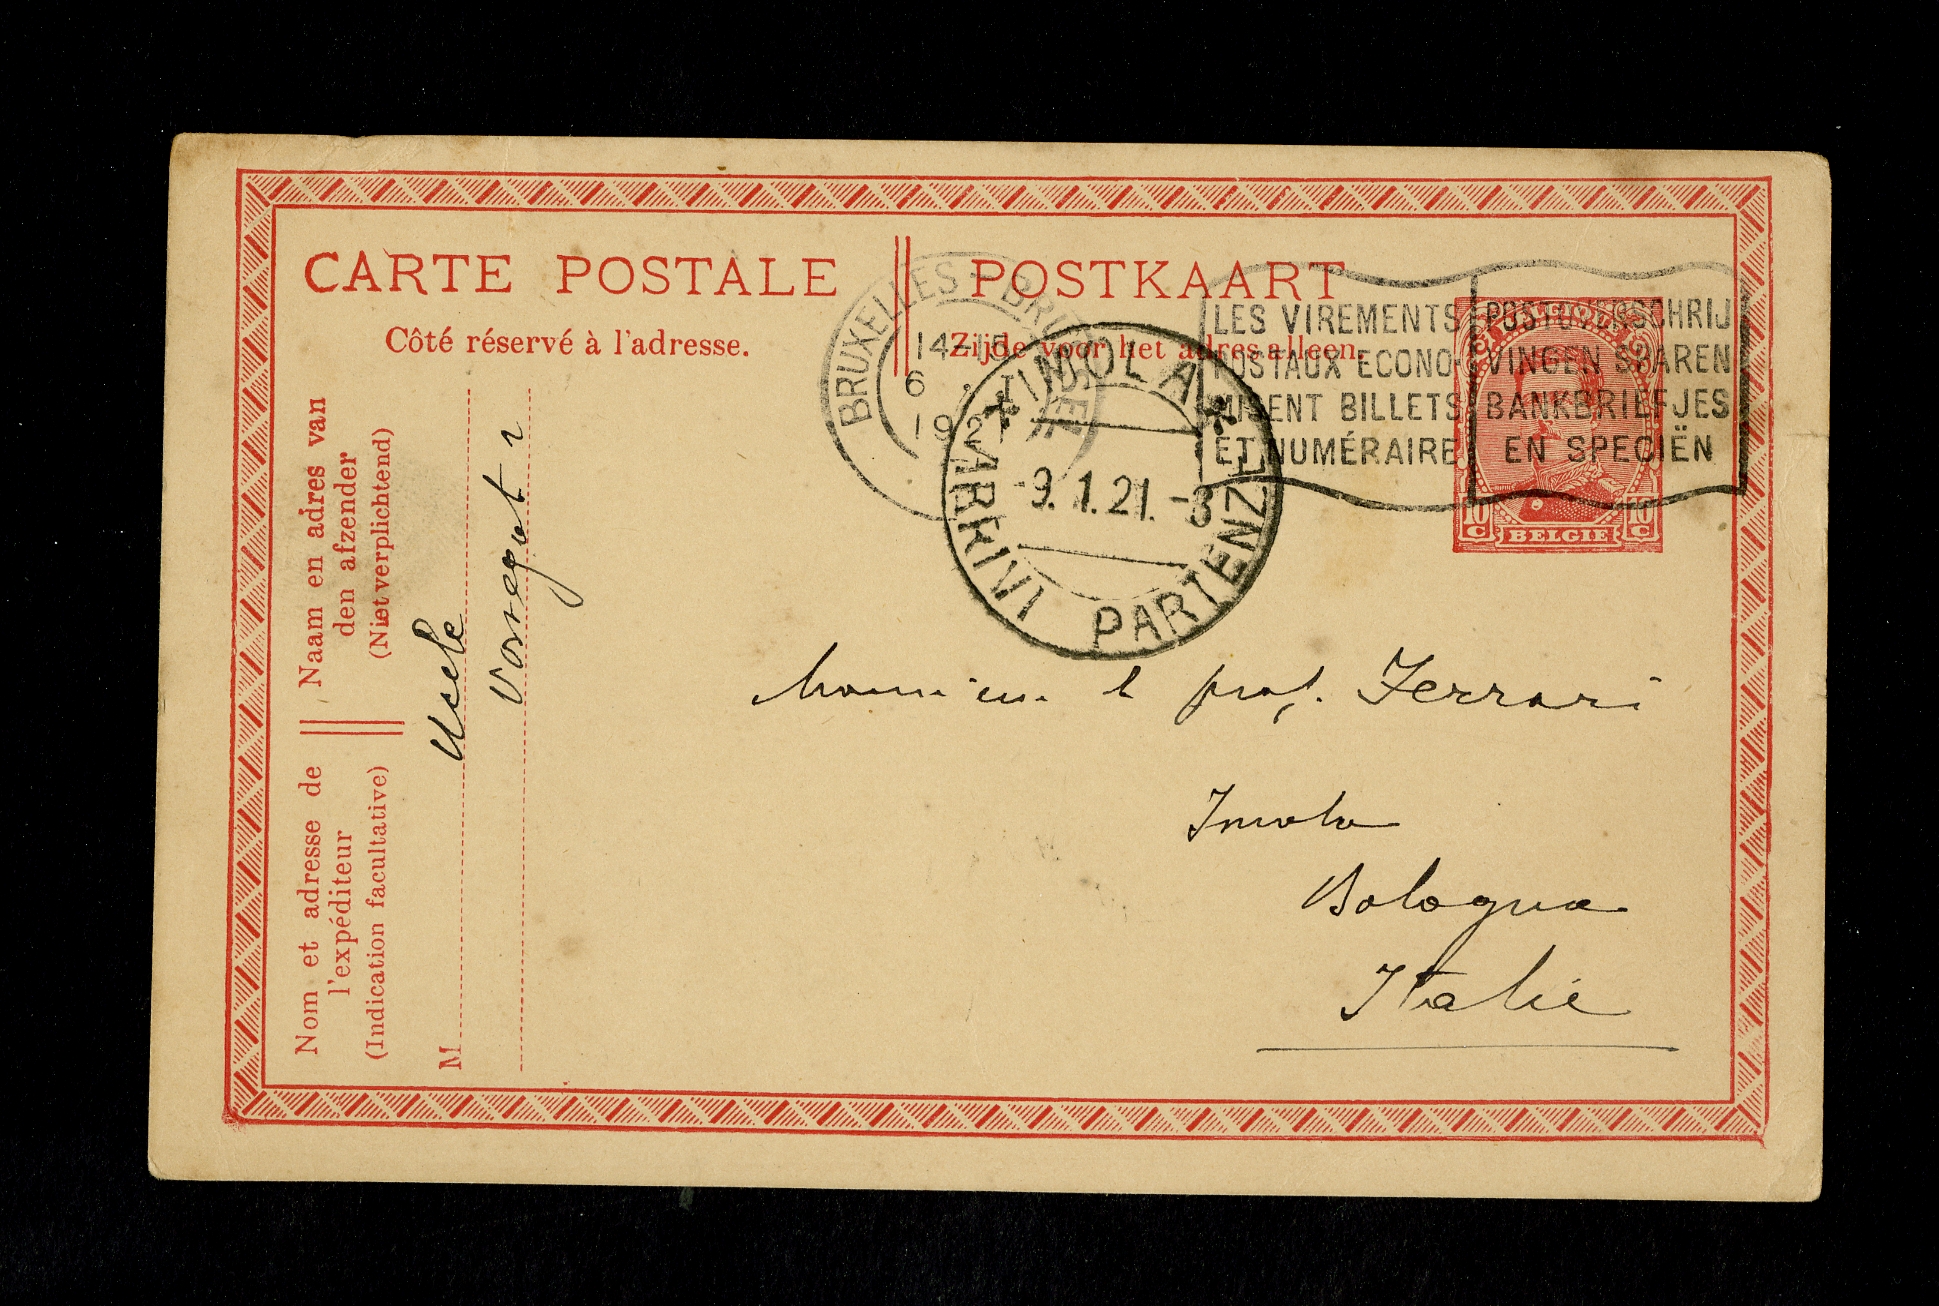 CARTE POSTALE
Côté réservé à l'adresse.
POSTKAART
Zijde voor het adres alleen.
BRUXELLES - BRUSSEL
14-15
6 I
1921
LES VIREMENTS
POSTAUX ECONO-
MISENT BILLETS
ET NUMÉRAIRE
POSTOVERSCHRIJ
VINGEN SPAREN
BANKBRIEFJES
EN SPECIËN
10 C
BELGIE
10 C
IMOLA
ARRIVI PARTENZE
-9.1.21.-8
Naam en adres van
den afzender
(Niet verplichtend)
Nom et adresse de
l'expéditeur
(Indication facultative)
M
Uccle
Monsieur l prof. Ferrari
Imola
Bologna
Italie